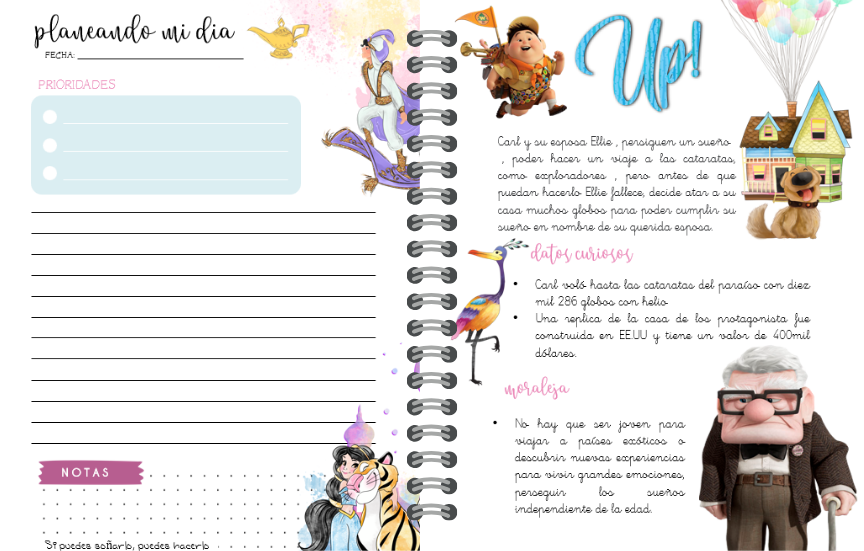 planeando mi dia
FECHA:
PRIORIDADES
NOTAS
Si puedes soñarlo, puedes hacerlo
Up!
Carl y su esposa Ellie , persiguen un sueño
, poder hacer un viaje a las cataratas,
como exploradores , pero antes de que
puedan hacerlo Ellie fallece, decide atar a su
casa muchos globos para poder cumplir su
sueño en nombre de su querida esposa.
datos curiosos
• Carl voló hasta las cataratas del paraíso con diez
mil 286 globos con helio
• Una replica de la casa de los protagonista fue
construida en EE.UU y tiene un valor de 400mil
dólares.
moraleja
• No hay que ser joven para
viajar a países exóticos o
descubrir nuevas experiencias
para vivir grandes emociones,
perseguir los sueños
independiente de la edad.